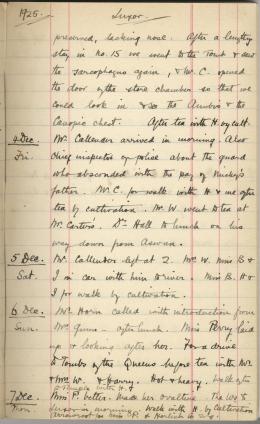 1925. Luxor.
preserved, lacking nose. After a lengthy
stay in no. 15 we went to the Tomb & saw
the sarcophagus again, & Mr. C. opened
the door of the store chamber so that we
could look in & see the Anubis & the
Canopic chest. After tea with H. by cult.
4 Dec. Mr. Callender arrived in morning. Also
Fri. Chief inspector of police about the guard
who absconded with the pay of
father. Mr. C. for walk with H & me after
tea by cultivation. Mr. W. went to tea at
Mr. Carter's. Dr. Hall to lunch on his
way down from Aswan.
5 Dec. Mr. Callender left at 2. Mrs W. Miss B &
Sat. I in car with him to river. Miss B. H &
I for walk by cultivation.
6 Dec. Mr. Horn called with introduction from
Sun. Mr. Gunn - after lunch. Miss Perry laid
up & looking after her. For a drive
to Tombs of the Queens before tea with Mr.
& Mrs W. & Harry. Hot & heavy. Walk after
7 Dec. Miss P. better. Made her ovaltine. The W's to
Mon. Luxor in morning. Walk with H. by Cultivation